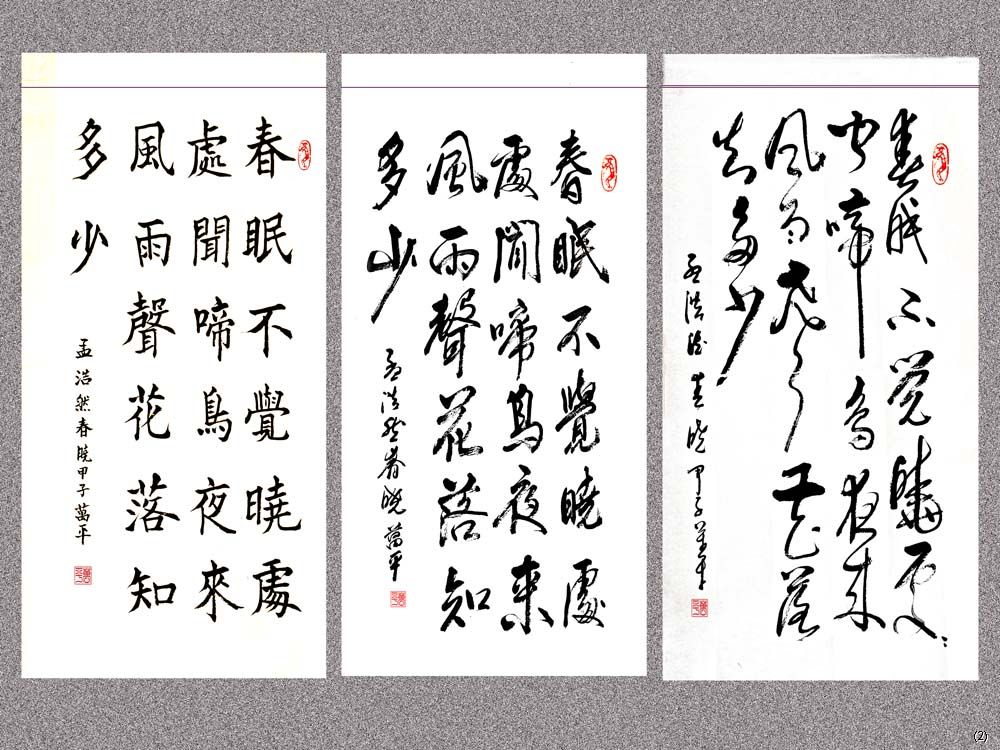 春眠不覺曉處
處聞啼鳥夜來
風雨聲花落知
多少
孟浩然春曉甲子萬平
春眠不覺曉處
處聞啼鳥夜來
風雨聲花落知
多少
孟浩然春曉萬平
春眠不覺曉處:
聞啼鳥夜來
風雨聲花落
知多少
孟浩然春曉甲子萬平
(2)